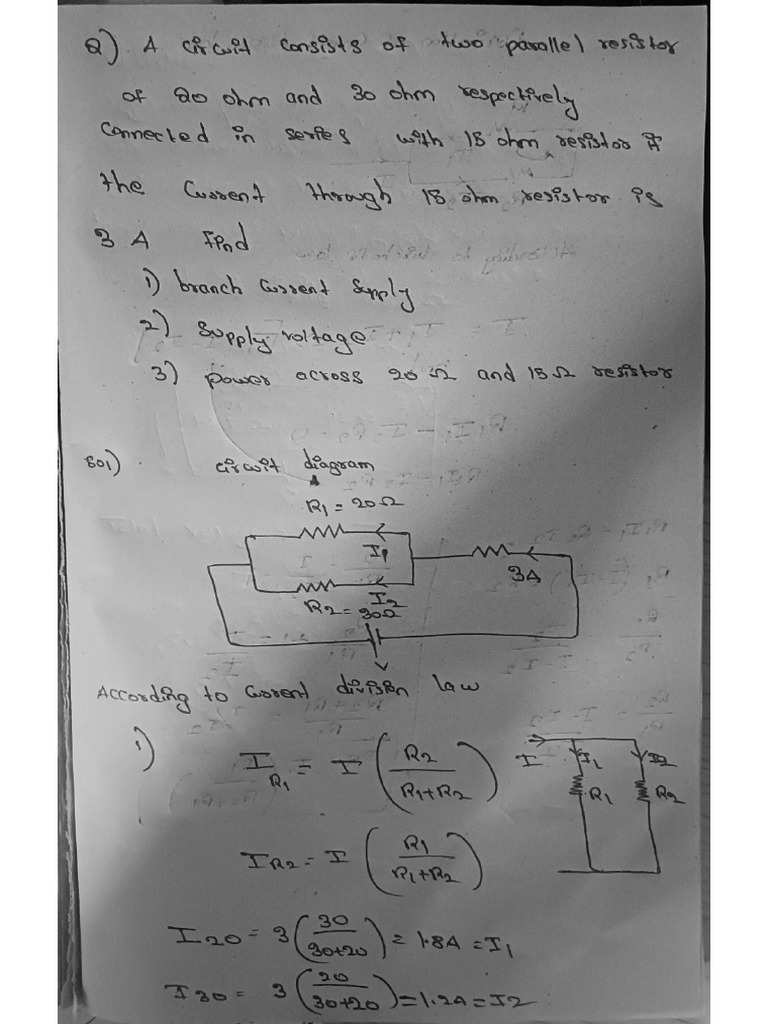 Q) A circuit consists of two parallel resistor
of 20 ohm and 30 ohm respectively
Connected in series with 15 ohm resistor If
the Current through 15 ohm resistor is
3 A Find
1) branch Current Supply
2) Supply voltage
3) power across 20 Ω and 15 Ω resistor
Sol) circuit diagram
R1 = 20Ω
I1
3A
I2
R2 = 30Ω
V
According to Current division law
1) I_R1 = I (R2 / R1+R2)
I I1 I2
R1 R2
I_R2 = I (R1 / R1+R2)
I20 = 3 (30 / 30+20) = 1.8A = I1
I30 = 3 (20 / 30+20) = 1.2A = I2